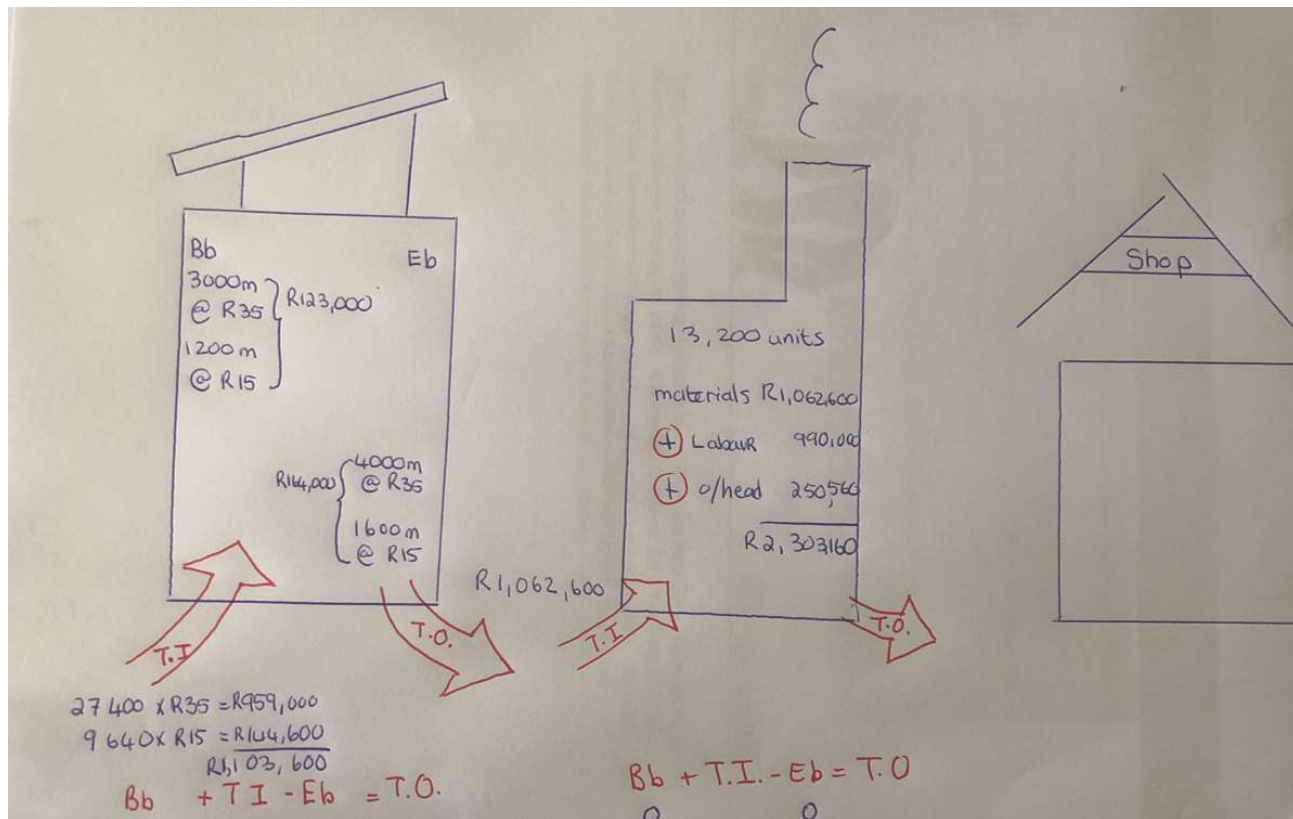 Bb
3000m
@ R35
R123,000
1200m
@ R15
Eb
4000m
@ R35
R164,000
1600m
@ R15
T.I
T.O.
27 400 x R35 = R959,000
9 640 x R15 = R144,600
R1,103,600
Bb + T I - Eb = T.O.
13,200 units
materials R1,062,600
+ Labour 990,000
+ o/head 250,560
R2,303,160
R1,062,600
T.I
T.O.
Bb + T.I. - Eb = T.O
0 0
Shop